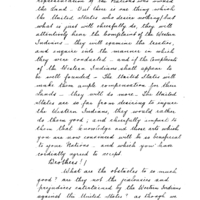 representatives of the Nations who owned
the Land. But there is one thing which
the United States who desire nothing but
what is just will cheerfully do, they will
attentively hear the complaint of the Western
Indians – they will examine the treaties,
and enquire into the manner in which
they were conducted – and if the complaints
of the Western Indians shall appear to
be well founded – The United States will
make them ample compensation for their
lands – they will do more. The United
States are so far from desiring to injure
the Western Indians, they would rather
do them good; and cheerfully impart to
them that knowledge and those arts which
you are now convinced will be so important
to your Nations, and which you have
cordially agreed to accept.
Brothers!!
What are the obstacles to so much
good? are they not the jealousies and
prejudices entertained by the Western Indians
against the United States? as though we